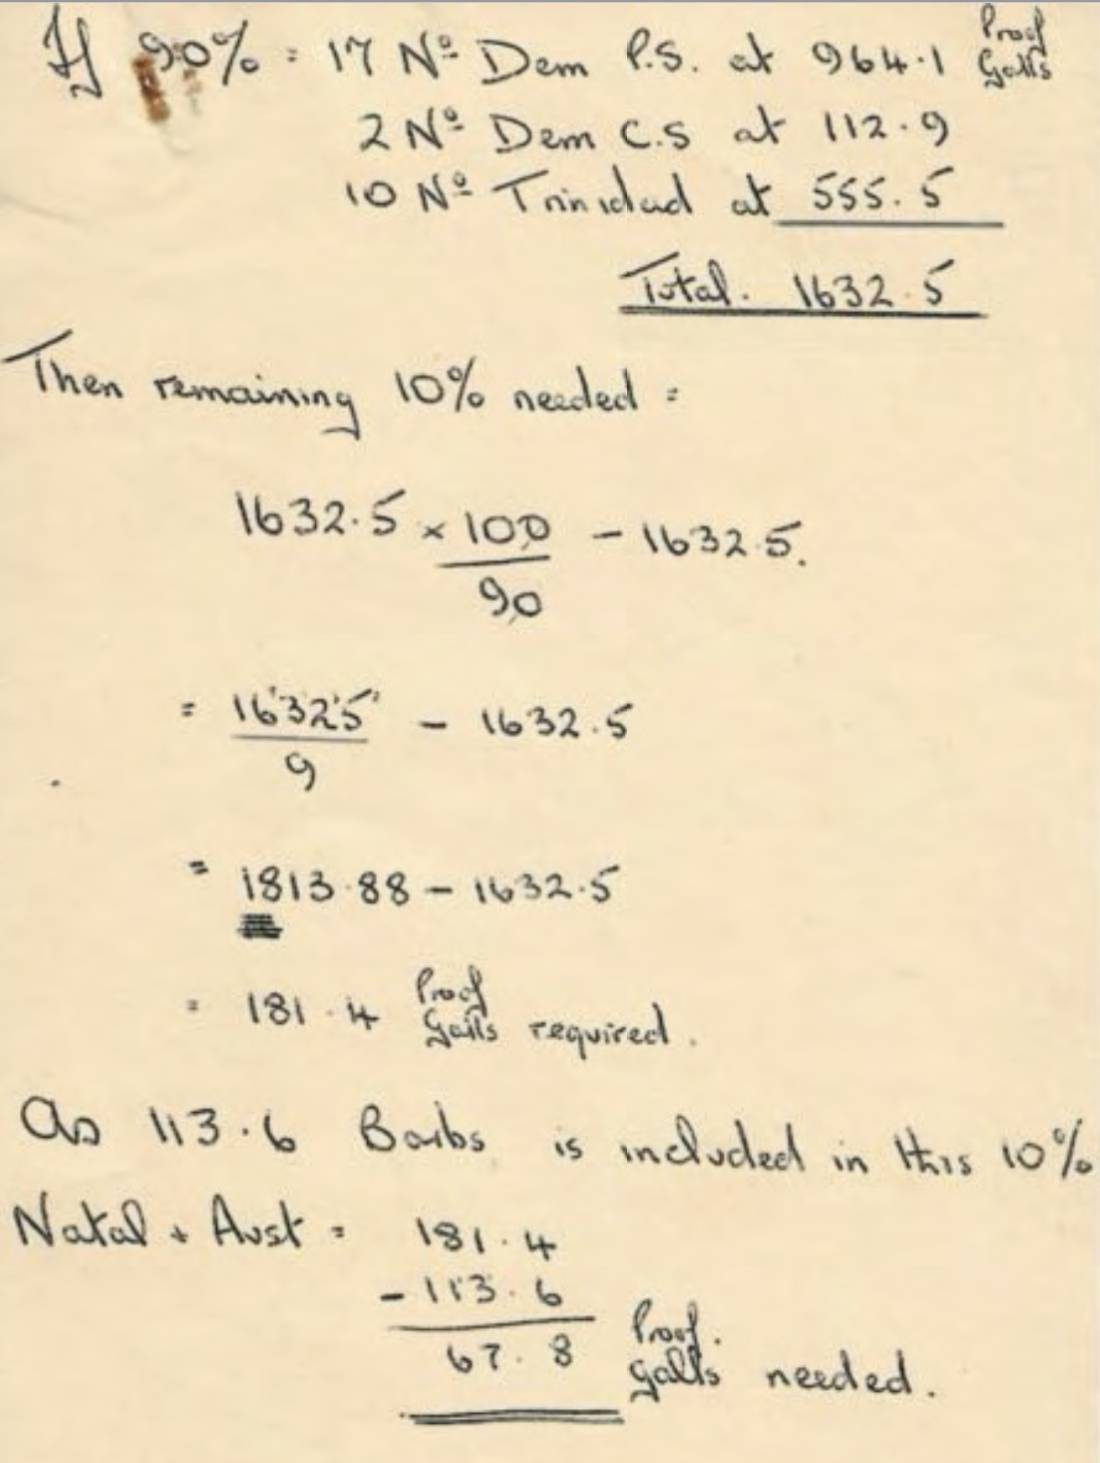 If 90% = 17 Nº Dem P.S. at 964.1 Proof Galls
2 Nº Dem C.S at 112.9
10 Nº Trinidad at 555.5
Total. 1632.5
Then remaining 10% needed =
1632.5 × 100/90 - 1632.5.
= 16325/9 - 1632.5
= 1813.88 - 1632.5
= 181.4 Proof Galls required.
As 113.6 Barbs is included in this 10%
Natal + Aust = 181.4
- 113.6
67.8 Proof. galls needed.